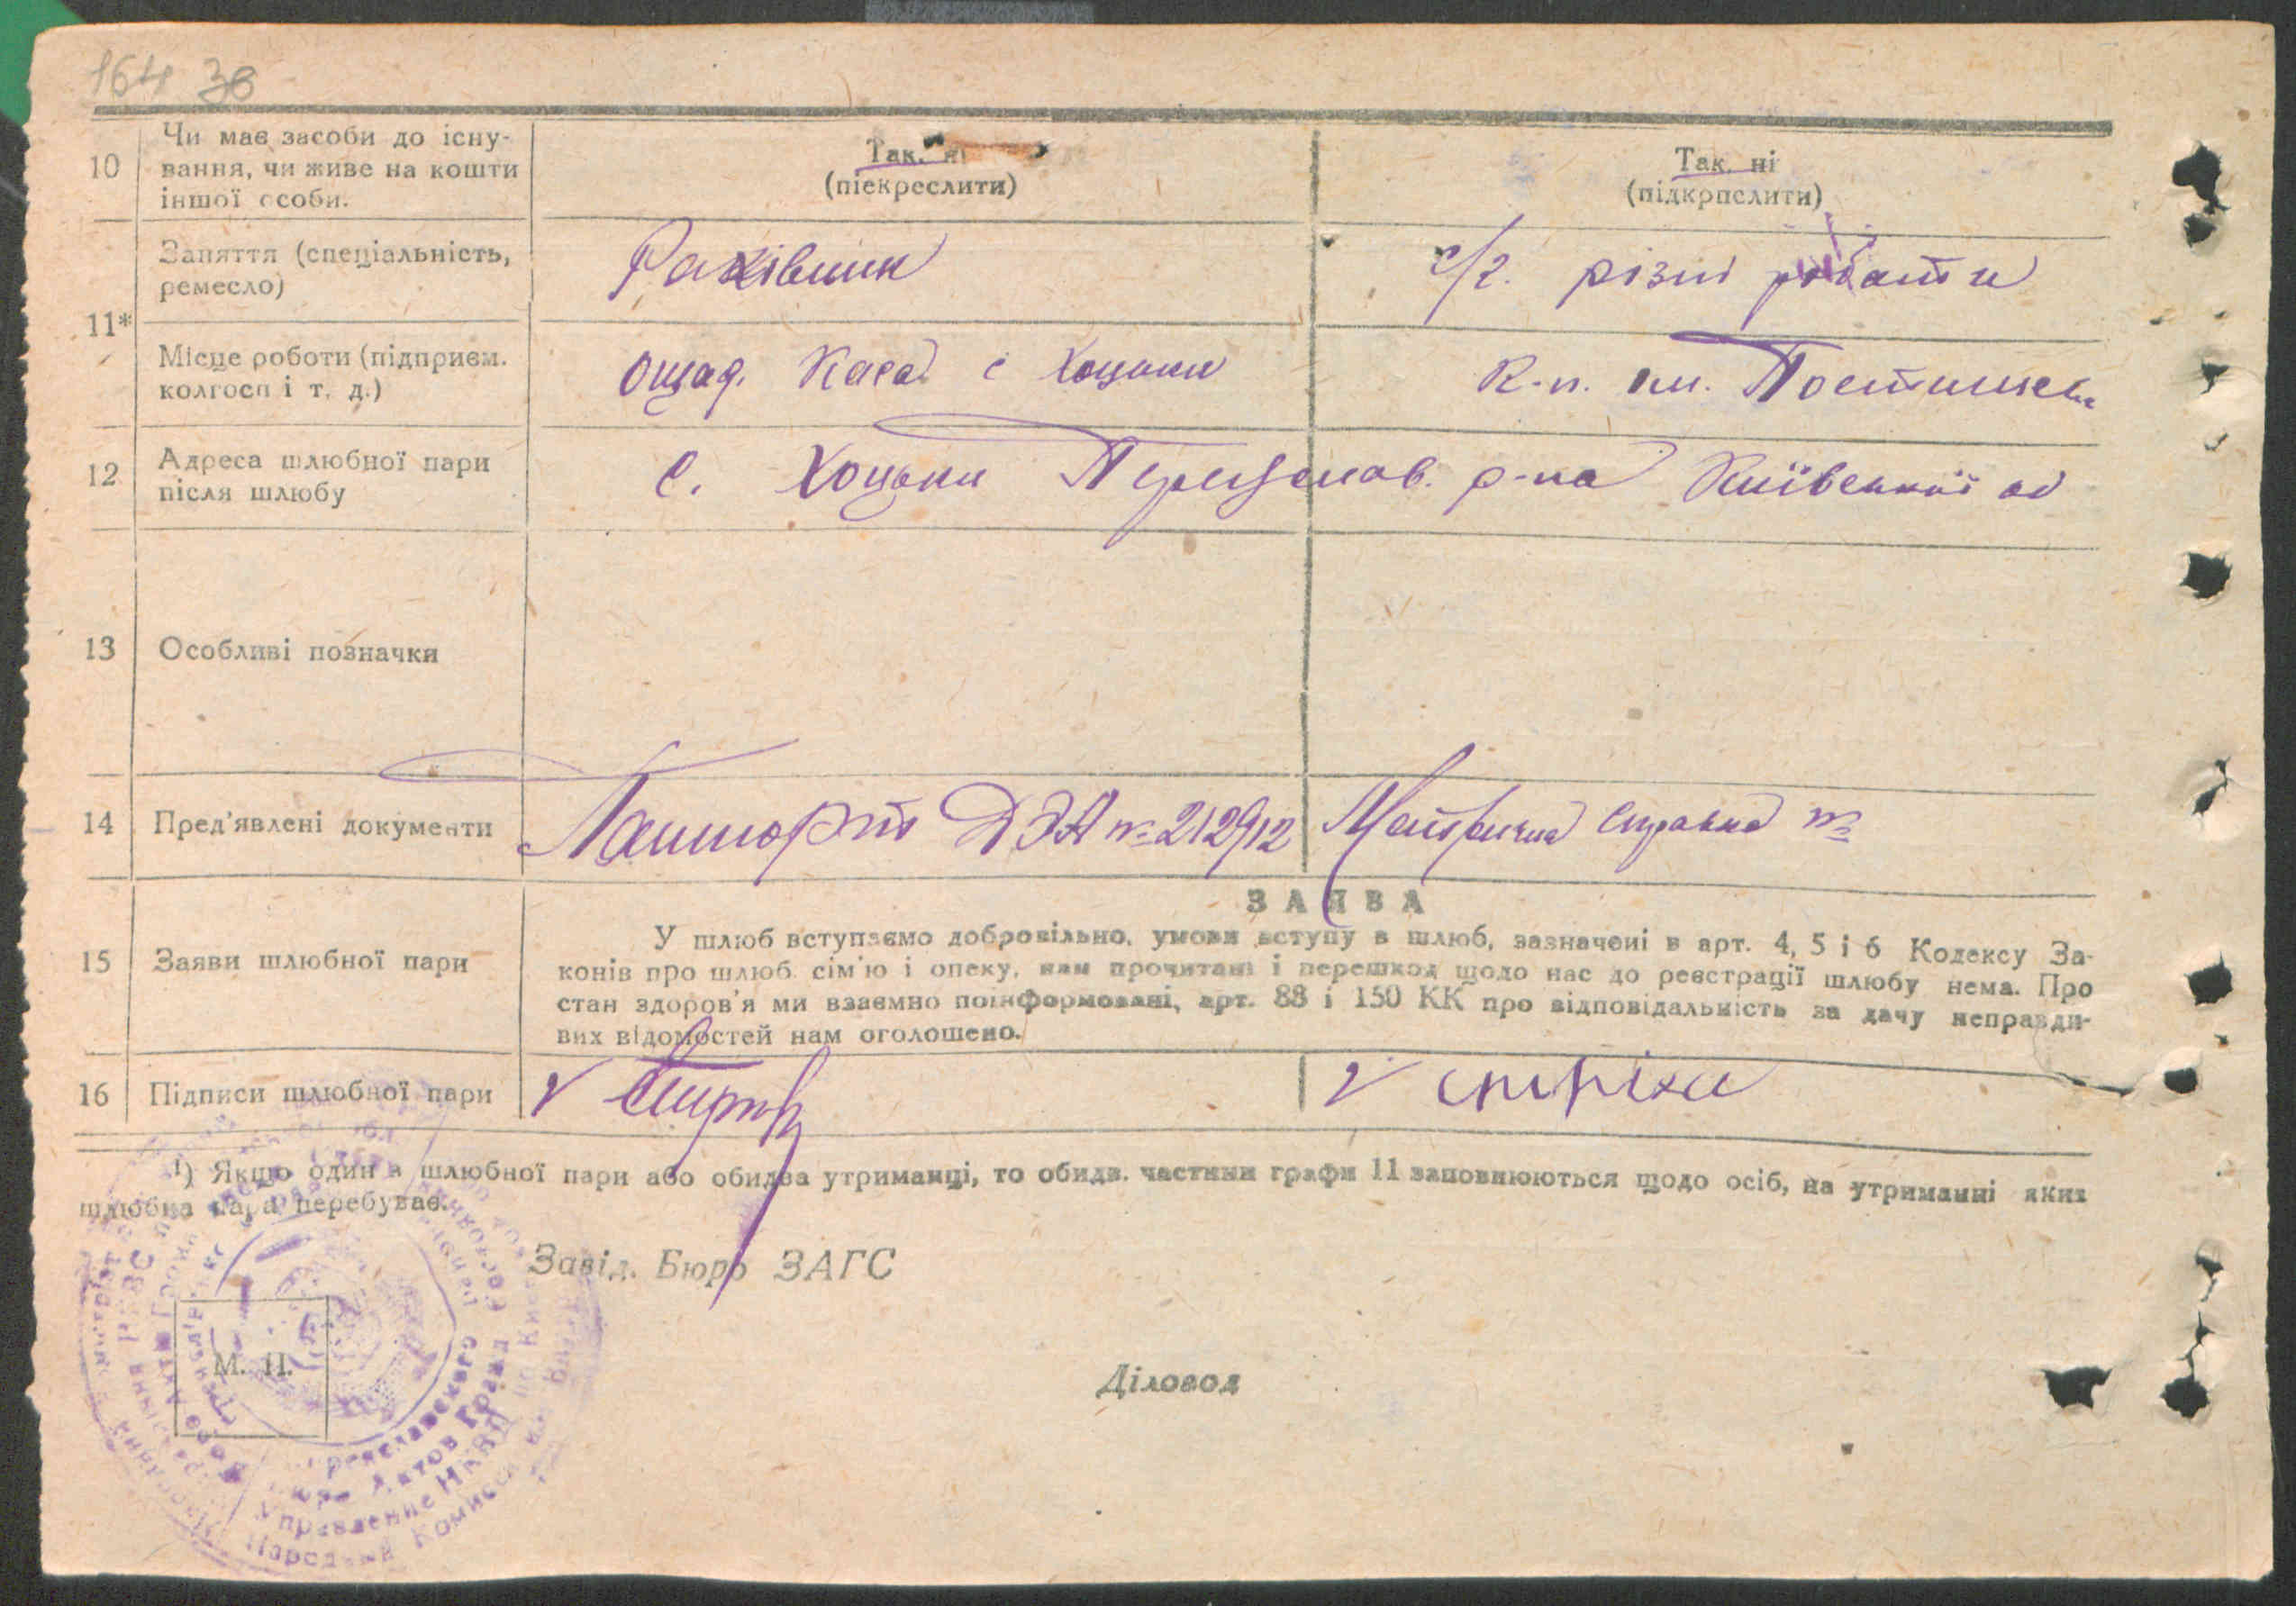 164 зв
10
Чи має засоби до існу-
вання, чи живе на кошти
іншої особи.
Так. ні
(піекреслити)
Так. ні
(підкрпслити)
11*
Заняття (спеціальність,
ремесло)
Рахівник
с/г. різні роботи
Місце роботи (підприєм.
колгосп і т. д.)
Ощад. Каса с Хоцьки
К-п. ім. Постишева
12
Адреса шлюбної пари
після шлюбу
С. Хоцьки Переяслав. р-на Київської об
13
Особливі позначки
14
Пред'явлені документи
Пашпорт ДЭА № 212912
Метрична справка №
15
Заяви шлюбної пари
ЗАЯВА
У шлюб вступаємо добровільно, умови вступу в шлюб, зазначені в арт. 4, 5 і 6 Кодексу За-
конів про шлюб. сім'ю і опеку, нам прочитані і перешкод щодо нас до реєстрації шлюбу нема. Про
стан здоров'я ми взаємно поінформовані, арт. 88 і 150 КК про відповідальність за дачу неправди-
вих відомостей нам оголошено.
16
Підписи шлюбної пари
1) Якщо один з шлюбної пари або обидва утриманці, то обидв. частини графи 11 заповнюються щодо осіб, на утриманні яких
шлюбна пара перебуває.
Завід. Бюро ЗАГС
М. П.
Діловод
Переяславского
Актов Гражд
Управление НКВД
Народный Комисс